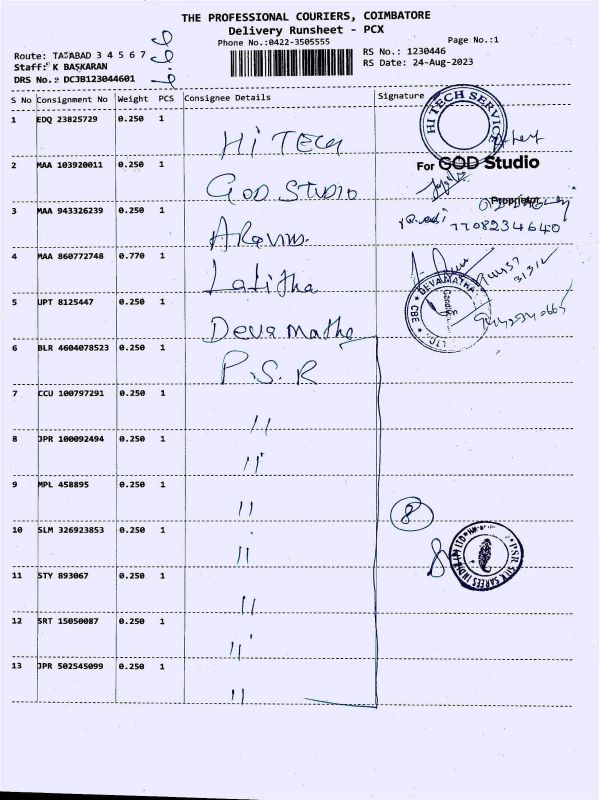 THE PROFESSIONAL COURIERS, COIMBATORE
Delivery Runsheet - PCX
Phone No.:0422-3505555
Page No.:1
Route: TATABAD 3 4 5 6 7
Staff: K BASKARAN
DRS No.: DCJB123044601
RS No.: 1230446
RS Date: 24-Aug-2023
S No Consignment No Weight PCS Consignee Details Signature
1 EDQ 23825729 0.250 1 Hi TECH HI TECH SERVICE
2 MAA 103920011 0.250 1 GOD STUDIO For GOD Studio
Proprietor
3 MAA 943326239 0.250 1 7708234640
4 MAA 860772748 0.770 1 Lalitha
5 UPT 8125447 0.250 1 Deva Matha DEVAMATHA CBE LTD.
6 BLR 4604078523 0.250 1 P.S.R
7 CCU 100797291 0.250 1 "
8 JPR 100092494 0.250 1 "
9 MPL 458895 0.250 1 " 8
10 SLM 326923853 0.250 1 " PSR SILK SAREES INDIA (P) LTD
11 STY 893067 0.250 1 "
12 SRT 15050087 0.250 1 "
13 JPR 502545099 0.250 1 "